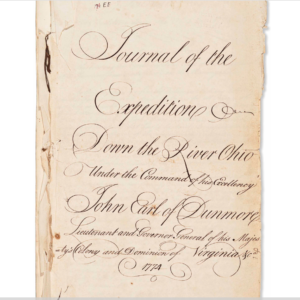 Journal of the
Expedition
Down the River Ohio
Under the Command of his Excellency
John Earl of Dunmore
Lieutenant and Governor General of his Majes
ty's Colony and Dominion of Virginia &c
1774